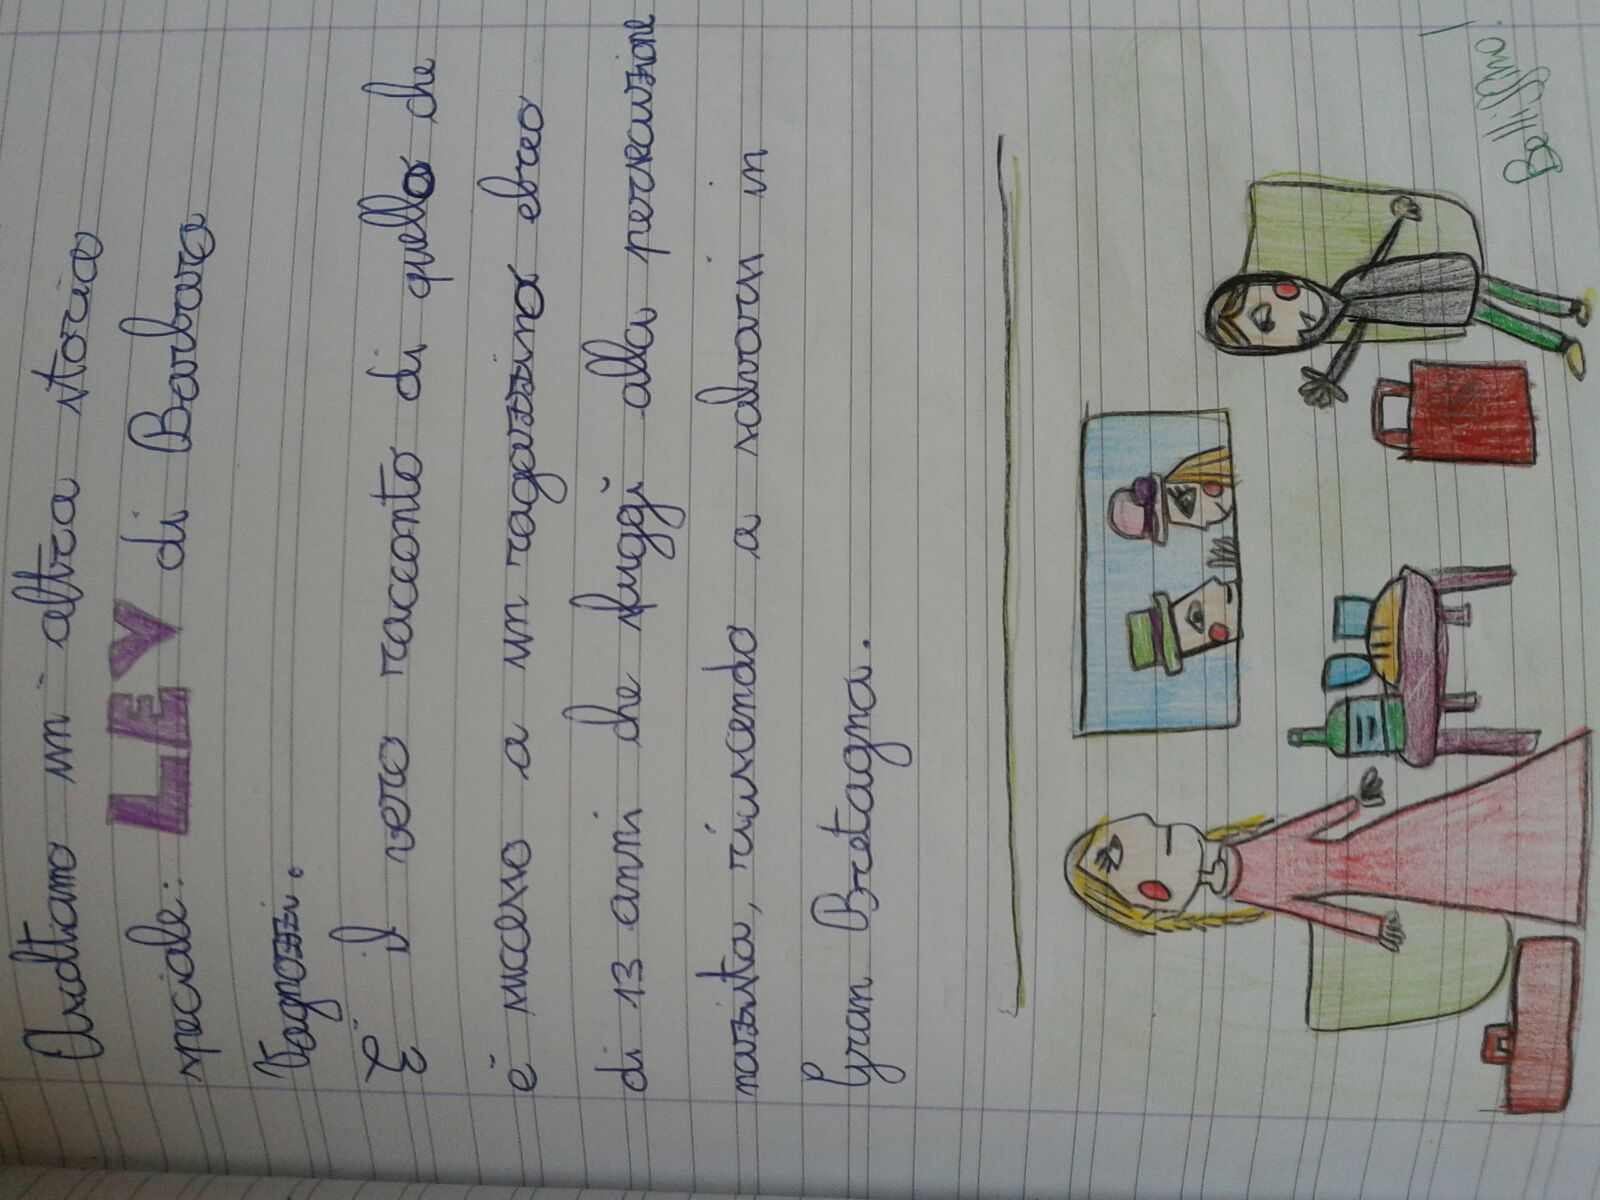 Ascoltiamo un' altra storia
speciale: LEV di Barbara
Vagnozzi.
È il vero racconto di quello che
è successo a un ragazzino ebreo
di 13 anni che fuggì alla persecuzione
nazista, riuscendo a salvarsi in
Gran Bretagna.
Bellissimo!